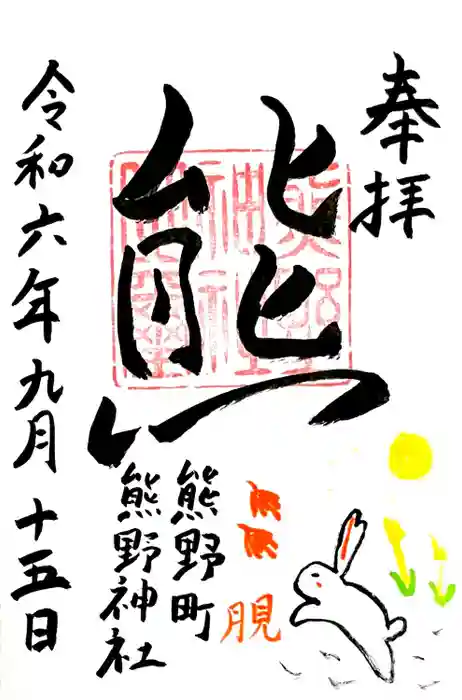 奉拝
熊
熊野町
熊野神社
令和六年九月十五日